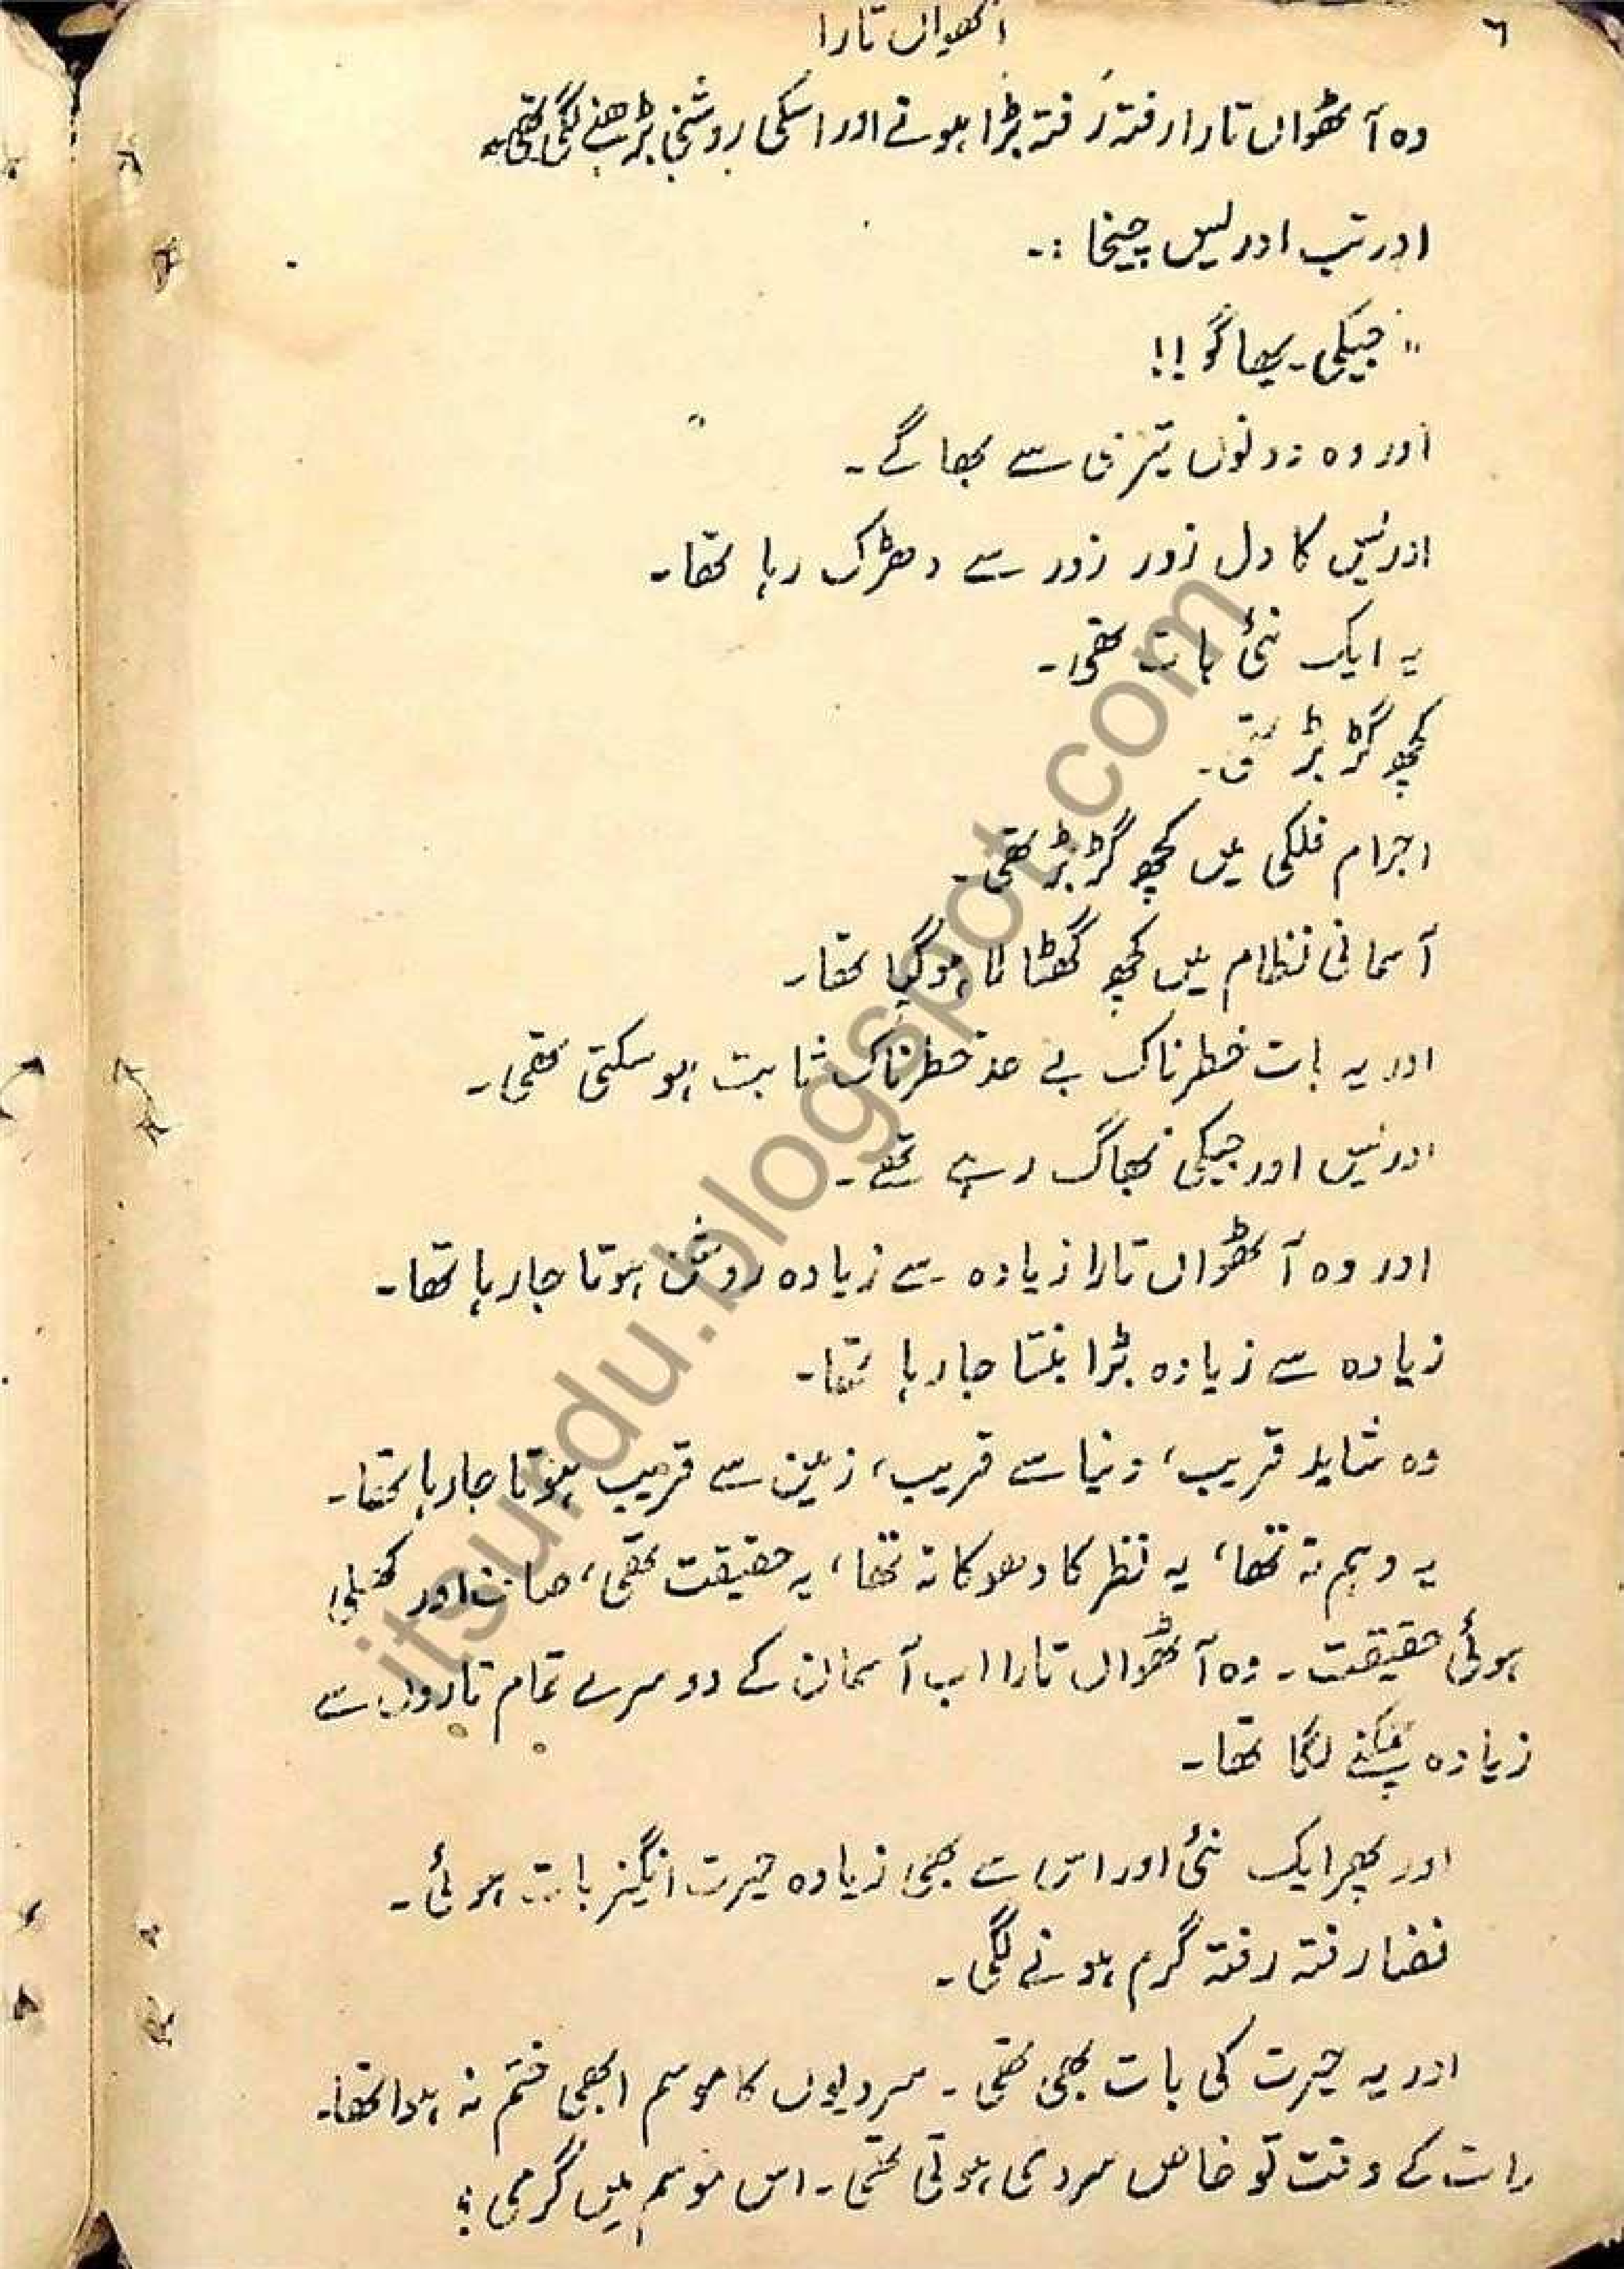 آٹھواں تارا
٦
وہ آٹھواں تارا رفتہ رفتہ بڑا ہونے اور اسکی روشنی بڑھنے لگی تھی۔
اور تب ادریس چیخا :۔
"جیکی۔ بھاگو !!
"
اور وہ دونوں تیزی سے بھاگے۔
ادریس کا دل زور زور سے دھڑک رہا تھا۔
یہ ایک نئی بات تھی۔
کچھ گڑ بڑ تھی۔
اجرام فلکی میں کچھ گڑ بڑ تھی۔
آسمانی نظام میں کچھ گھٹالا ہوگیا تھا۔
اور یہ بات خطرناک بے حد خطرناک ثابت ہو سکتی تھی۔
ادریس اور جیکی بھاگ رہے تھے۔
اور وہ آٹھواں تارا زیادہ سے زیادہ روشن ہوتا جا رہا تھا۔
زیادہ سے زیادہ بڑا بنتا جا رہا تھا۔
وہ شاید قریب، دنیا سے قریب، زمین سے قریب ہوتا جا رہا تھا۔
یہ وہم نہ تھا، یہ نظر کا دھوکا نہ تھا، یہ حقیقت تھی، صاف اور کھلی
ہوئی حقیقت۔ وہ آٹھواں تارا اب آسمان کے دوسرے تمام تاروں سے
زیادہ چمکنے لگا تھا۔
اور پھر ایک نئی اور اس سے بھی زیادہ حیرت انگیز بات ہوئی۔
فضا رفتہ رفتہ گرم ہونے لگی۔
اور یہ حیرت کی بات بھی تھی۔ سردیوں کا موسم ابھی ختم نہ ہوا تھا۔
رات کے وقت تو خاصی سردی ہوتی تھی۔ اس موسم میں گرمی ؟
itsurdu.blogspot.com